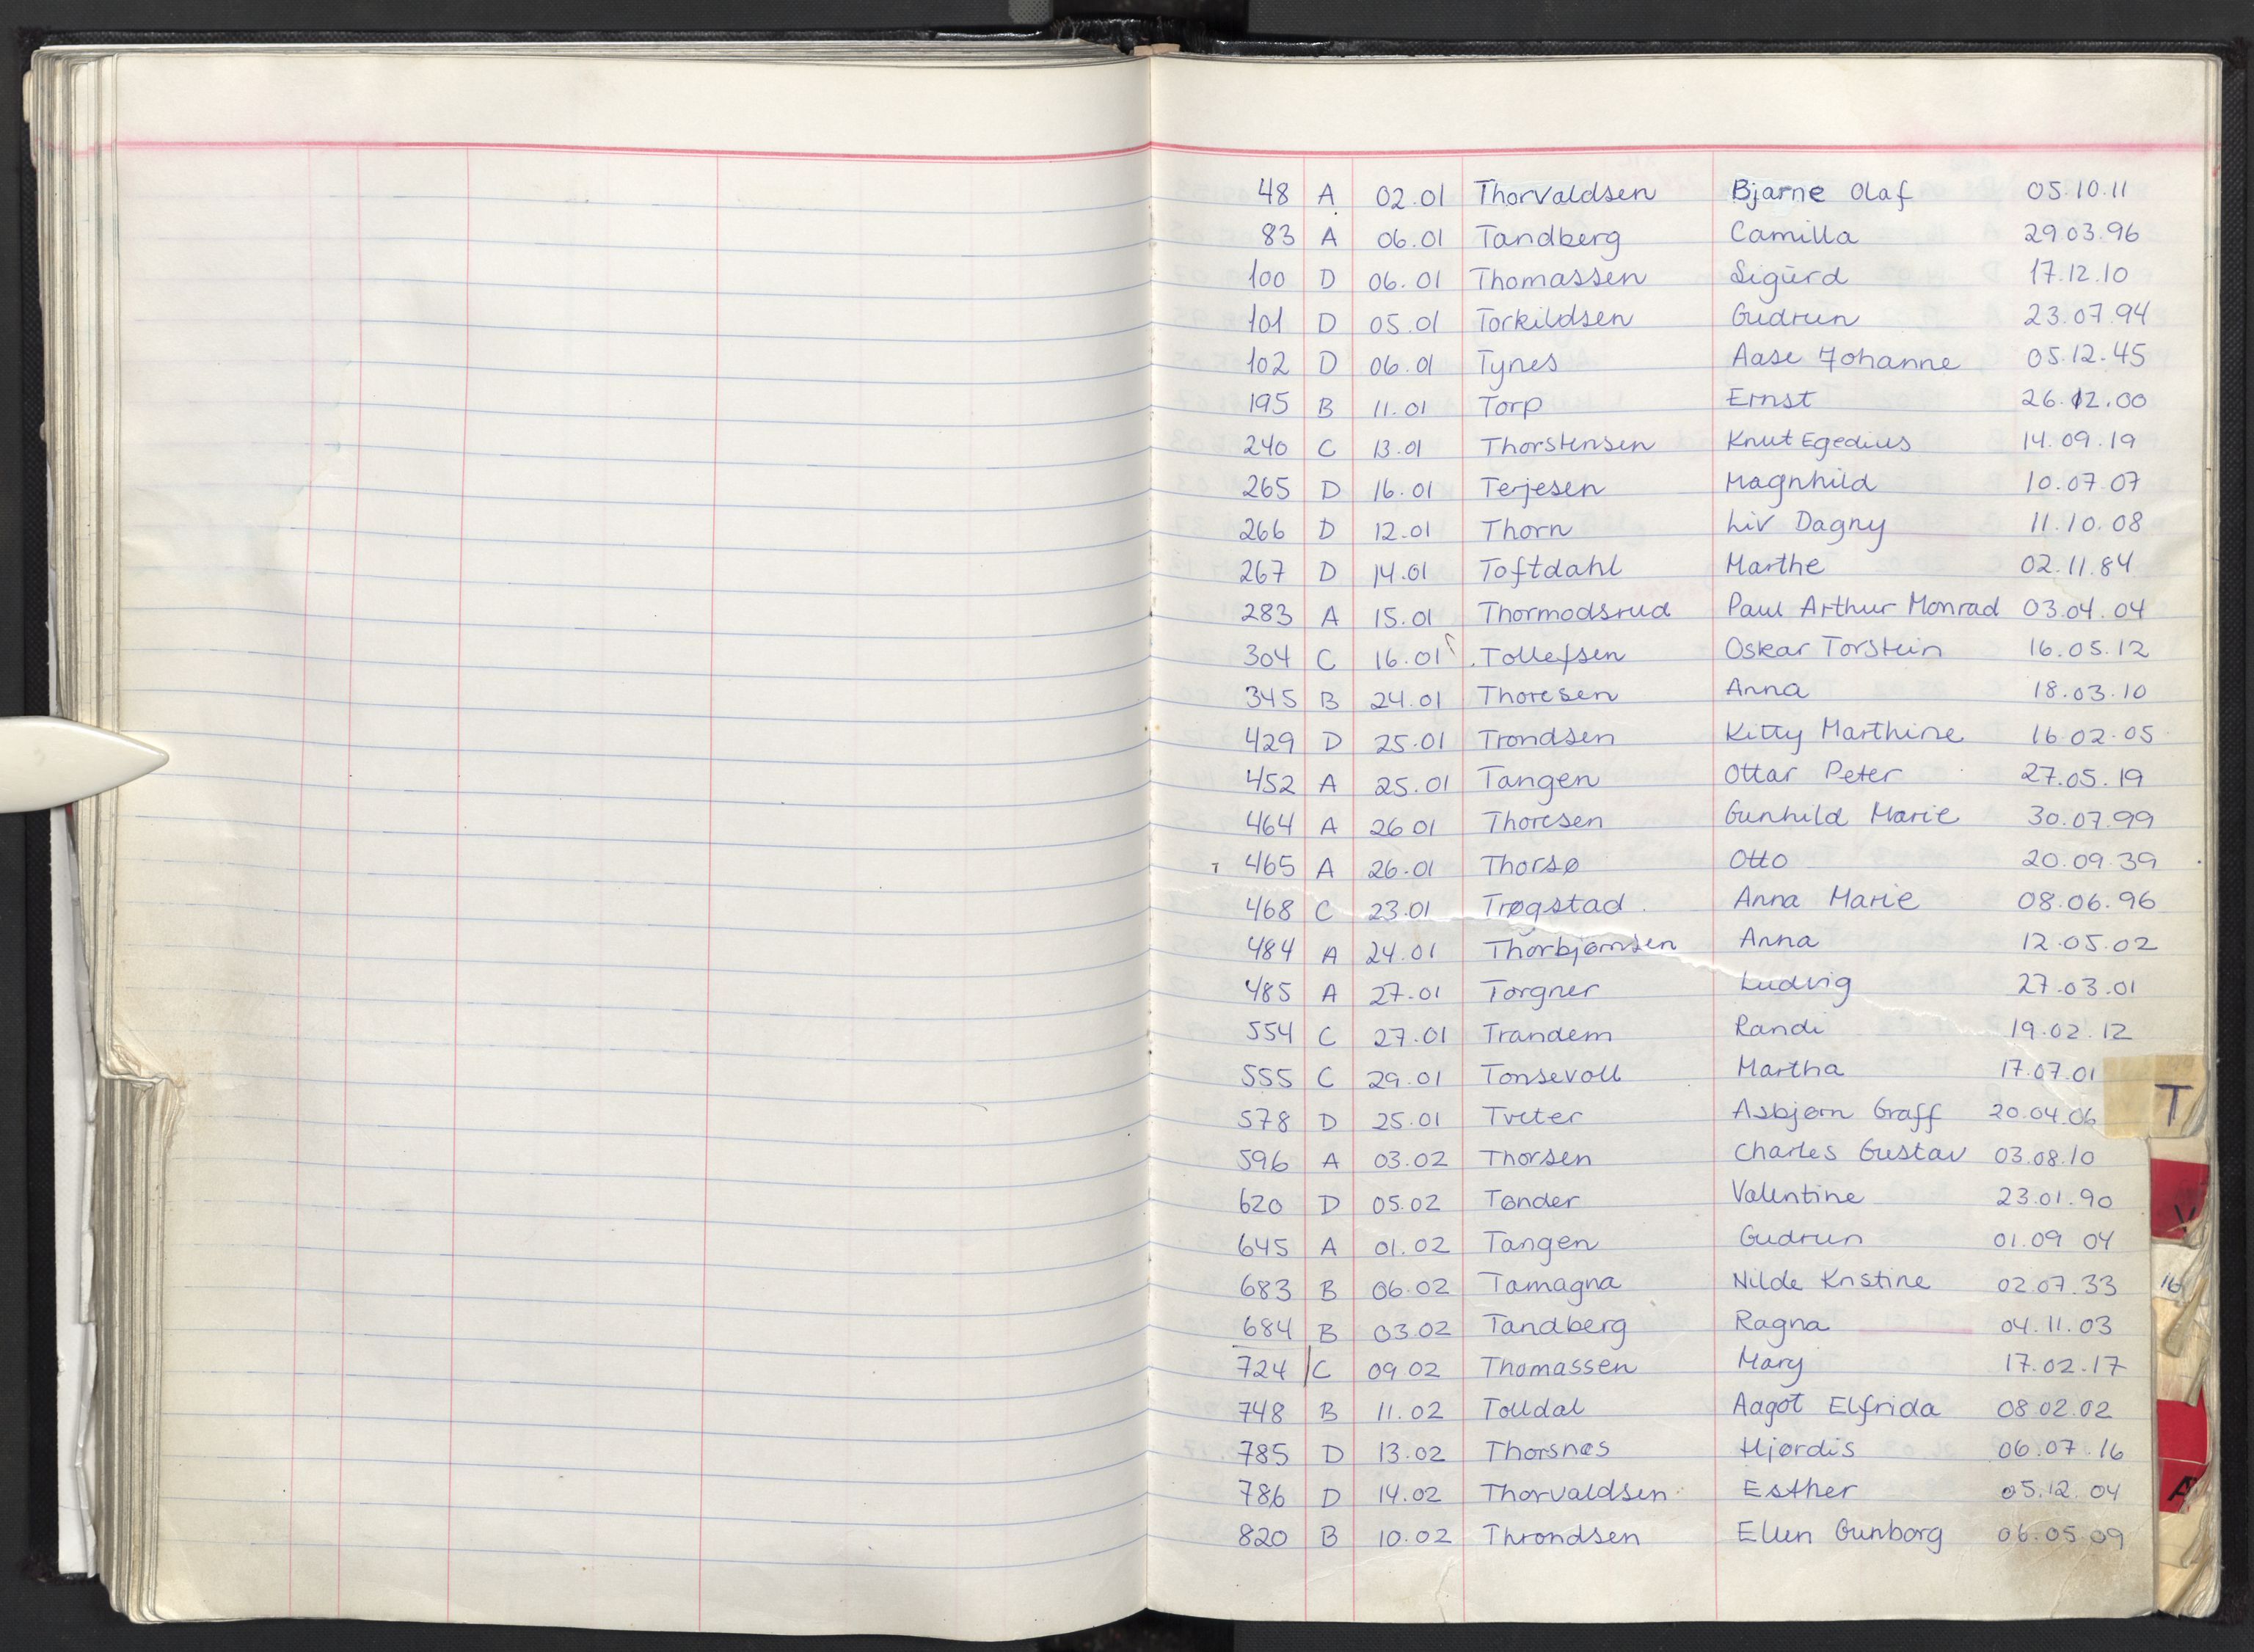 48 A 02.01 Thorvaldsen Bjarne Olaf 05.10.11
83 A 06.01 Tandberg Camilla 29.03.96
100 D 06.01 Thomassen Sigurd 17.12.10
101 D 05.01 Torkildsen Gudrun 23.07.94
102 D 06.01 Tynes Aase Johanne 05.12.45
195 B 11.01 Torp Ernst 26.12.00
240 C 13.01 Thorstensen Knut Egedius 14.09.19
265 D 16.01 Terjesen Magnhild 10.07.07
266 D 12.01 Thorn Liv Dagny 11.10.08
267 D 14.01 Toftdahl Marthe 02.11.84
283 A 15.01 Thormodsrud Paul Arthur Monrad 03.04.04
304 C 16.01 Tollefsen Oskar Torstein 16.05.12
345 B 24.01 Thoresen Anna 18.03.10
429 D 25.01 Trondsen Kitty Marthine 16.02.05
452 A 25.01 Tangen Ottar Peter 27.05.19
464 A 26 01 Thoresen Gunhild Marie 30.07.99
465 A 26.01 Thorsø Otto 20.09.39
468 C 23.01 Trøgstad Anna Marie 08.06.96
484 A 24.01 Thorbjørnsen Anna 12.05.02
485 A 27.01 Torgner Ludvig 27.03.01
554 C 27.01 Trandem Randi 19.02.12
555 C 29.01 Tonsevoll Martha 17.07.01
T
578 D 25.01 Tveter Asbjørn Graff 20.04.06
596 A 03.02 Thorsen Charles Gustav 03.08.10
620 D 05.02 Tønder Valentine 23.01.90
V
645 A 01.02 Tangen Gudrun 01.09 04
683 B 06.02 Tamagna Nilde Kristine 02.07.33
16
684 B 03.02 Tandberg Ragna 04.11.03
724 C 09 02 Thomassen Mary 17.02.17
748 B 11.02 Tolldal Aagot Elfrida 08 02.02
785 D 13.02 Thorsnes Hjørdis 06.07.16
786 D 14.02 Thorvaldsen Esther 05.12.04
A
820 B 10.02 Throndsen Ellen Gunborg 06.05.09